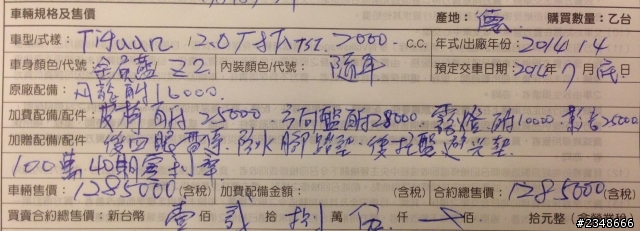 車輛規格及售價 產地：德 購買數量：乙台
車型/式樣：Tiguan 2.0 TSI 2000 C.C. 年式/出廠年份：2014 14
車身顏色/代號： 藍 Z2 內裝顏色/代號： 隨車 預定交車日期：2014年7月底日
原廠配備： 附16000.
加費配備/配件： 皮椅 附25000. 方向盤附28000. 霧燈附10000. 影音25000
加贈配備/配件： 後四眼雷達. 防水腳踏墊. 後托盤 避光墊.
100萬40期零利率
車輛售價：1285000(含稅) 加費配備金額： (含稅) 合約總售價：1285000(含稅)
買賣合約總售價：新台幣 壹佰 貳拾 捌萬 伍仟 佰 拾元整
#2348666